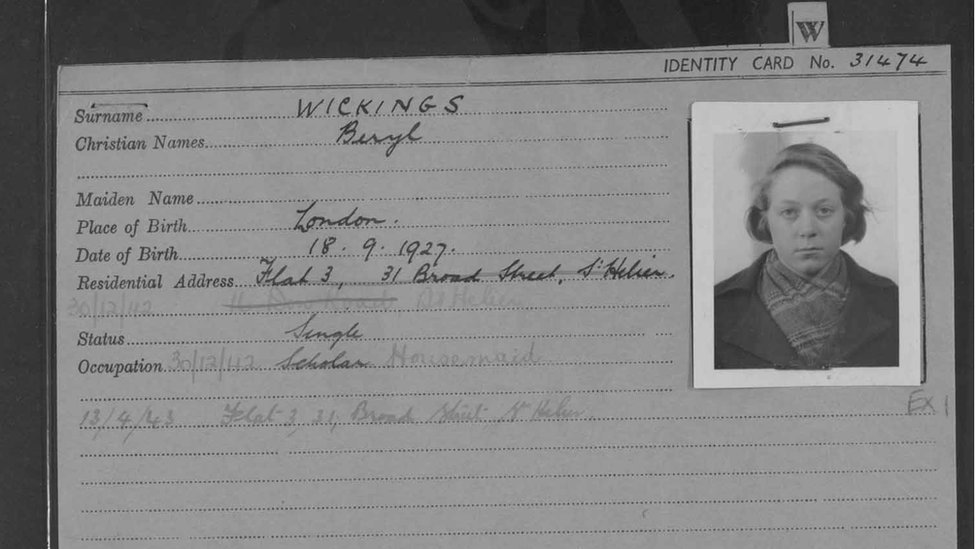 W
IDENTITY CARD No. 31474
Surname WICKINGS
Christian Names Beryl
Maiden Name
Place of Birth London.
Date of Birth 18. 9. 1927.
Residential Address Flat 3, 31 Broad Street, St Helier.
30/12/42 St Helier
Status Single
Occupation 30/12/42 Scholar Housemaid
13/4/43 Flat 3, 31, Broad Street, St Helier.
EX 1